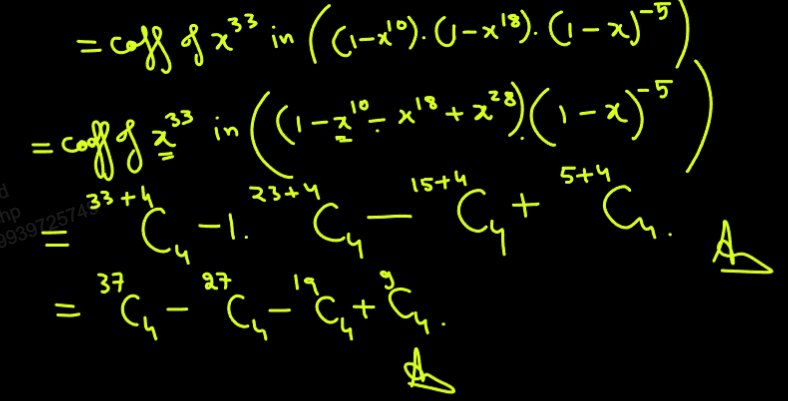 = coff of x³³ in ((1-x¹⁰).(1-x¹⁸).(1-x)⁻⁵)
= coff of x³³ in ((1-x¹⁰-x¹⁸+x²⁸).(1-x)⁻⁵)
= ³³⁺⁴C₄ - 1. ²³⁺⁴C₄ - ¹⁵⁺⁴C₄ + ⁵⁺⁴C₄. A
= ³⁷C₄ - ²⁷C₄ - ¹⁹C₄ + ⁹C₄.
A